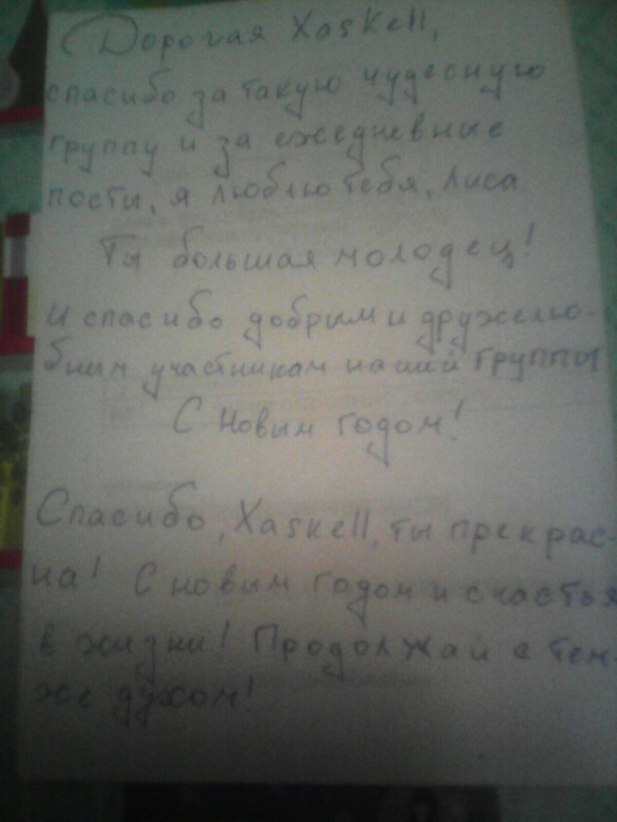 Дорогая Xaskell,
спасибо за такую чудесную
группу и за ежедневные
посты, я люблю тебя, Лиса
Ты большая молодец!
И спасибо добрым и дружелю-
бным участникам нашей группы
С Новым годом!
Спасибо, Xaskell, ты прекрас-
на! С новым годом и счастья
в жизни! Продолжай с тем
же духом!